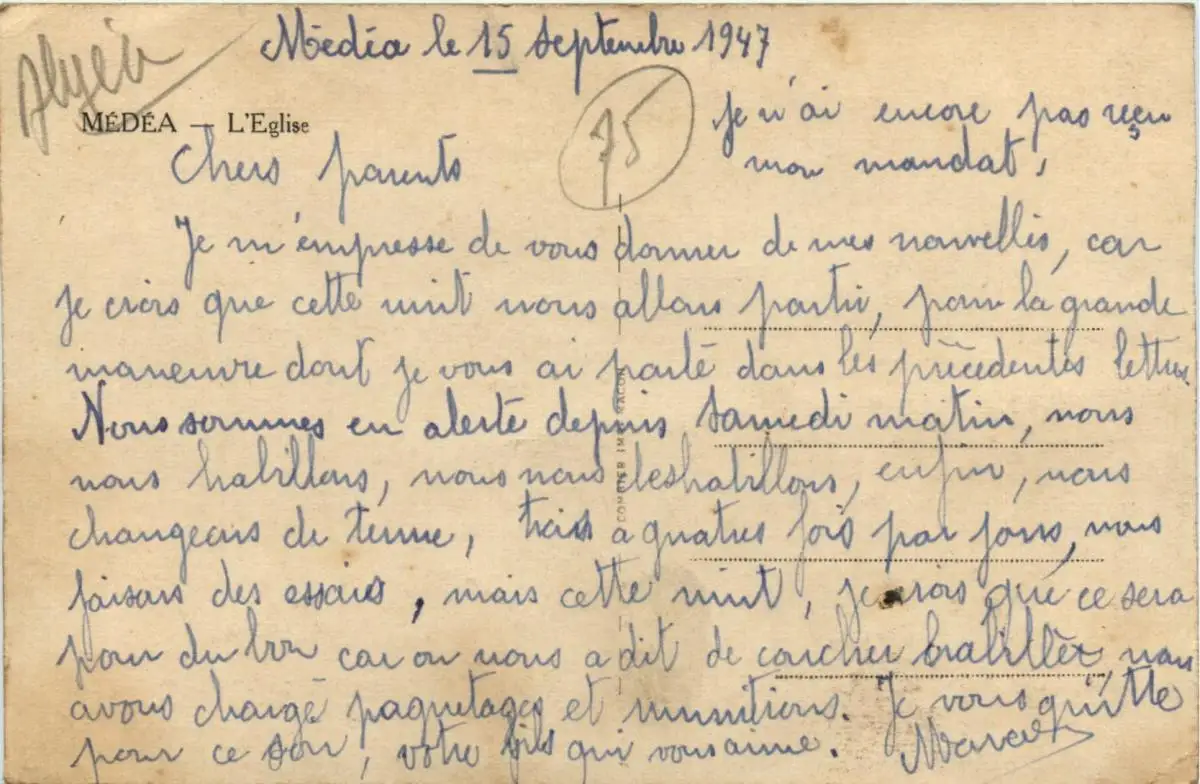 Algérie
Médéa le 15 septembre 1947
MÉDÉA — L'Eglise
75
Je n'ai encore pas reçu
mon mandat.
Chers parents
Je m'empresse de vous donner de mes nouvelles, car
je crois que cette nuit nous allons partir, pour la grande
maneuvre dont je vous ai parlé dans les précedentes lettres.
Nous sommes en alerte depuis samedi matin, nous
nous habillons, nous nous deshabillons, enfin, nous
changeons de tenue, trois a quatres fois par jours, nous
faisons des essais, mais cette nuit, je crois que ce sera
pour du bon car on nous a dit de coucher habillèr, nous
avons chargé paquetages et munitions. Je vous quitte
pour ce soir, votre fils qui vous aime.
COMBIER IMP. MACON